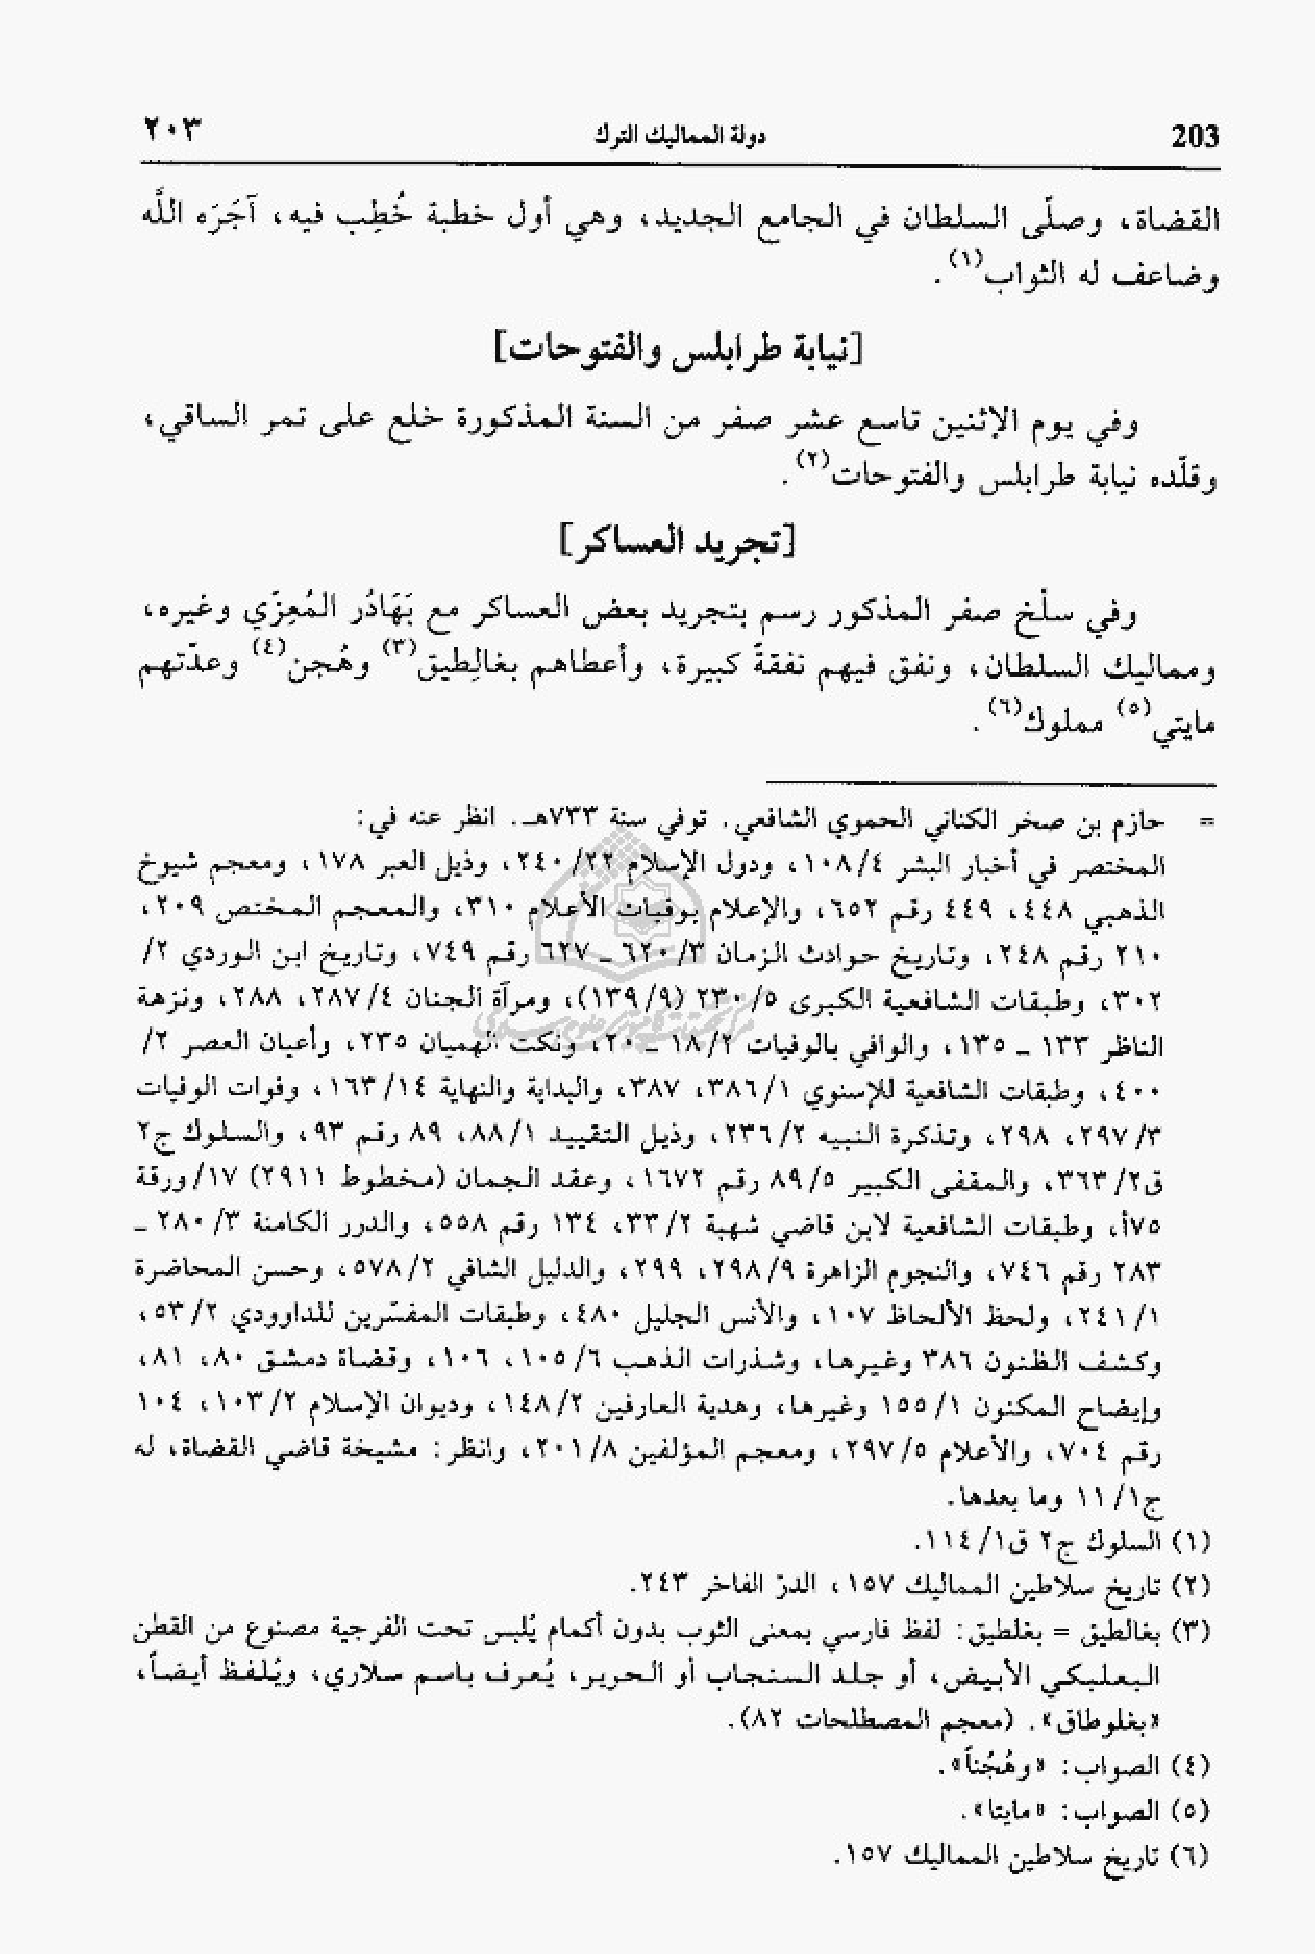 203 دولة المماليك الترك ٢٠٣
القضاة، وصلّى السلطان في الجامع الجديد، وهي أول خطبة خُطِب فيه، آجَرَه اللَّه
وضاعف له الثواب(١).
[نيابة طرابلس والفتوحات]
وفي يوم الإثنين تاسع عشر صفر من السنة المذكورة خلع على تمر الساقي،
وقلّده نيابة طرابلس والفتوحات(٢).
[تجريد العساكر]
وفي سلْخ صفر المذكور رسم بتجريد بعض العساكر مع بَهَادُر المُعِزّي وغيره،
ومماليك السلطان، ونفق فيهم نفقةً كبيرة، وأعطاهم بغالِطيق(٣) وهُجن(٤) وعدّتهم
مايتي(٥) مملوك(٦).
= حازم بن صخر الكناني الحموي الشافعي. توفي سنة ٧٣٣هـ. انظر عنه في:
المختصر في أخبار البشر ٤/ ١٠٨، ودول الإسلام ٢٢/ ٢٤٠، وذيل العبر ١٧٨، ومعجم شيوخ
الذهبي ٤٤٨، ٤٤٩ رقم ٦٥٢، والإعلام بوفيات الأعلام ٣١٠، والمعجم المختص ٢٠٩،
٢١٠ رقم ٢٤٨، وتاريخ حوادث الزمان ٣/ ٦٢٠ ـ ٦٢٧ رقم ٧٤٩، وتاريخ ابن الوردي ٢/
٣٠٢، وطبقات الشافعية الكبرى ٥/ ٢٣٠ (٩/ ١٣٩)، ومرآة الجنان ٤/ ٢٨٧، ٢٨٨، ونزهة
الناظر ١٣٣ ـ ١٣٥، والوافي بالوفيات ٢/ ١٨ ـ ٢٠، ونكت الهميان ٢٣٥، وأعيان العصر ٢/
٤٠٠، وطبقات الشافعية للإسنوي ١/ ٣٨٦، ٣٨٧، والبداية والنهاية ١٤/ ١٦٣، وفوات الوفيات
٣/ ٢٩٧، ٢٩٨، وتذكرة النبيه ٢/ ٢٣٦، وذيل التقييد ١/ ٨٨، ٨٩ رقم ٩٣، والسلوك ج٢
ق٢/ ٣٦٣، والمقفى الكبير ٥/ ٨٩ رقم ١٦٧٢، وعقد الجمان (مخطوط ٢٩١١) ١٧/ ورقة
٧٥أ، وطبقات الشافعية لابن قاضي شهبة ٢/ ٣٣، ١٣٤ رقم ٥٥٨، والدرر الكامنة ٣/ ٢٨٠ ـ
٢٨٣ رقم ٧٤٦، والنجوم الزاهرة ٩/ ٢٩٨، ٢٩٩، والدليل الشافي ٢/ ٥٧٨، وحسن المحاضرة
١/ ٢٤١، ولحظ الألحاظ ١٠٧، والأنس الجليل ٤٨٠، وطبقات المفسّرين للداوودي ٢/ ٥٣،
وكشف الظنون ٣٨٦ وغيرها، وشذرات الذهب ٦/ ١٠٥، ١٠٦، وقضاة دمشق ٨٠، ٨١،
وإيضاح المكنون ١/ ١٥٥ وغيرها، وهدية العارفين ٢/ ١٤٨، وديوان الإسلام ٢/ ١٠٣، ١٠٤
رقم ٧٠٤، والأعلام ٥/ ٢٩٧، ومعجم المؤلفين ٨/ ٢٠١، وانظر: مشيخة قاضي القضاة، له
ج١/ ١١ وما بعدها.
(١) السلوك ج٢ ق١/ ١١٤.
(٢) تاريخ سلاطين المماليك ١٥٧، الدرّ الفاخر ٢٤٣.
(٣) بغالطيق = بغلطيق: لفظ فارسي بمعنى الثوب بدون أكمام يُلبس تحت الفرجية مصنوع من القطن
البعلبكي الأبيض، أو جلد السنجاب أو الحرير، يُعرف باسم سلاري، ويُلفظ أيضاً،
«بغلوطاق». (معجم المصطلحات ٨٢).
(٤) الصواب: «وهُجُناً».
(٥) الصواب: «مايتا».
(٦) تاريخ سلاطين المماليك ١٥٧.